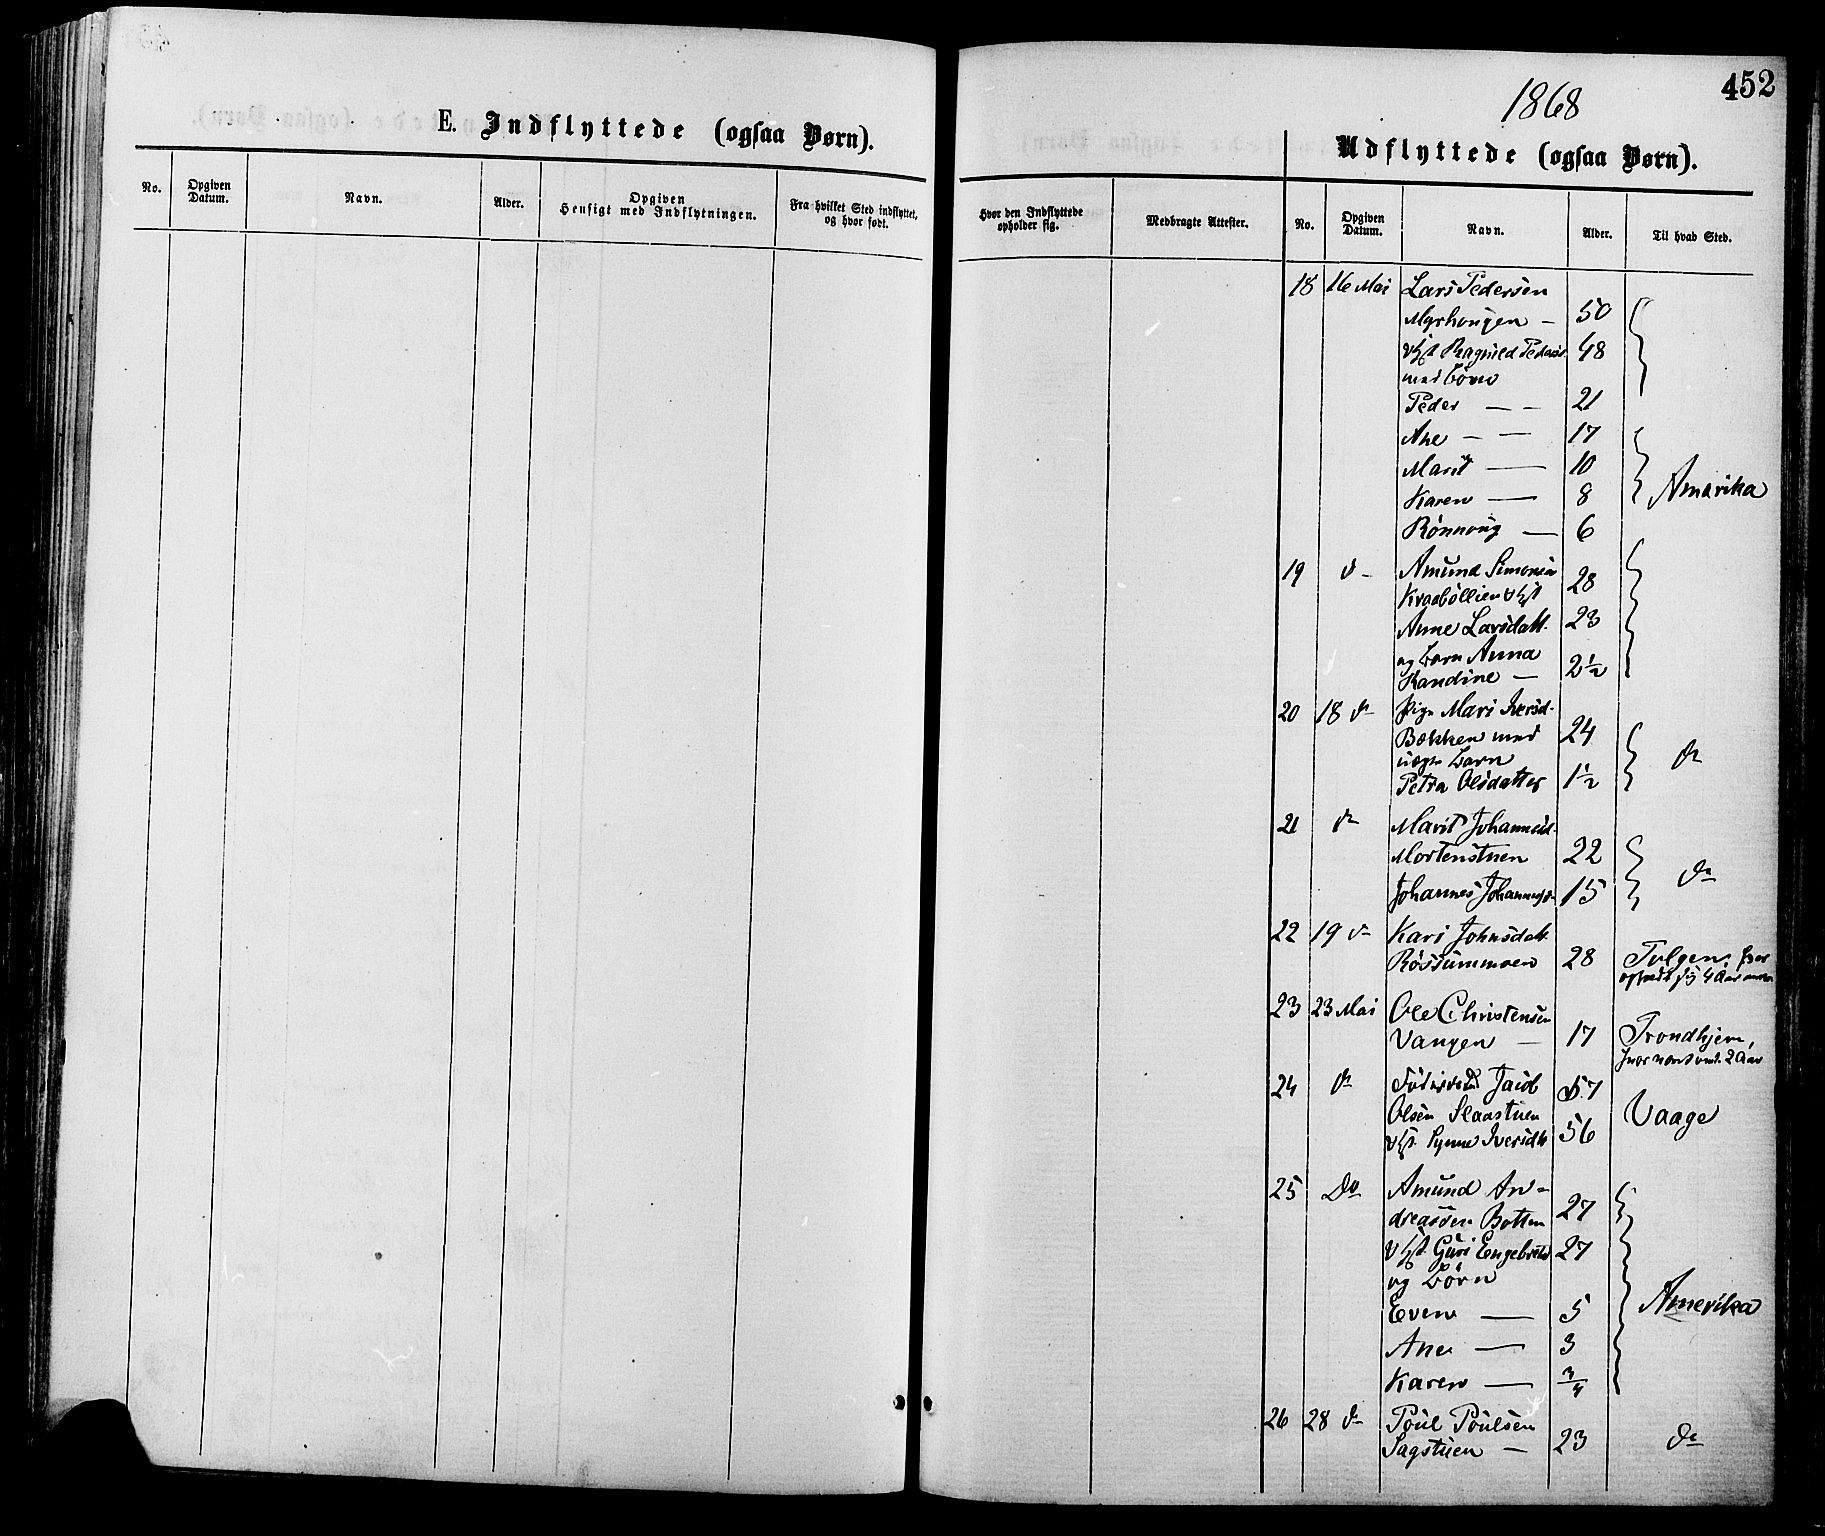 452
1868
E. Indflyttede (ogsaa Børn).
Udflyttede (ogsaa Børn).
No. Opgiven Datum. Navn. Alder. Opgiven Hensigt med Indflytningen. Fra hvilket Sted indflyttet, og hvor født.
Hvor den Indflyttede opholder sig. Medbragte Attester. No. Opgiven Datum. Navn. Alder. Til hvad Sted.
18 16 Mai Lars Pedersen
Myrhougen — 50
Ragnild Peders 48
med Børn
Peder — — 21
Ane — — 17
Marit — 10
Karen — 8 Amerika
Rönnoug — 6
19 d– Amund Simonsen
Kraabøllien 28
Anne Larsdatt. 23
og Barn Anna
Randine — 2½
20 18 do Pige Mari Iversd.
Bækken med 24
uægte Barn do
Petra Olsdatter 1½
21 do Marit Johannesd.
Mortenstuen 22
Johannes 15 do
22 19 do Kari Johnsdatt.
Røssummoen 28 Tolgen, hvor
opholdt sig 4 Aar
23 23 Mai Ole Christensen
Vangen — 17 Trondhjem,
hvor været omt. 2 Aar
24 do Jacob 57
Olsen Slaastuen Vaage
Synne Iversdt 56
25 Do Amund An-
dreassen Botten 27
Guri Engebretsd 27
og Børn
Even — 5 Amerika
Ane — 3
Karen — ¾
26 28 do Poul Poulsen
Sagstuen — 23 do